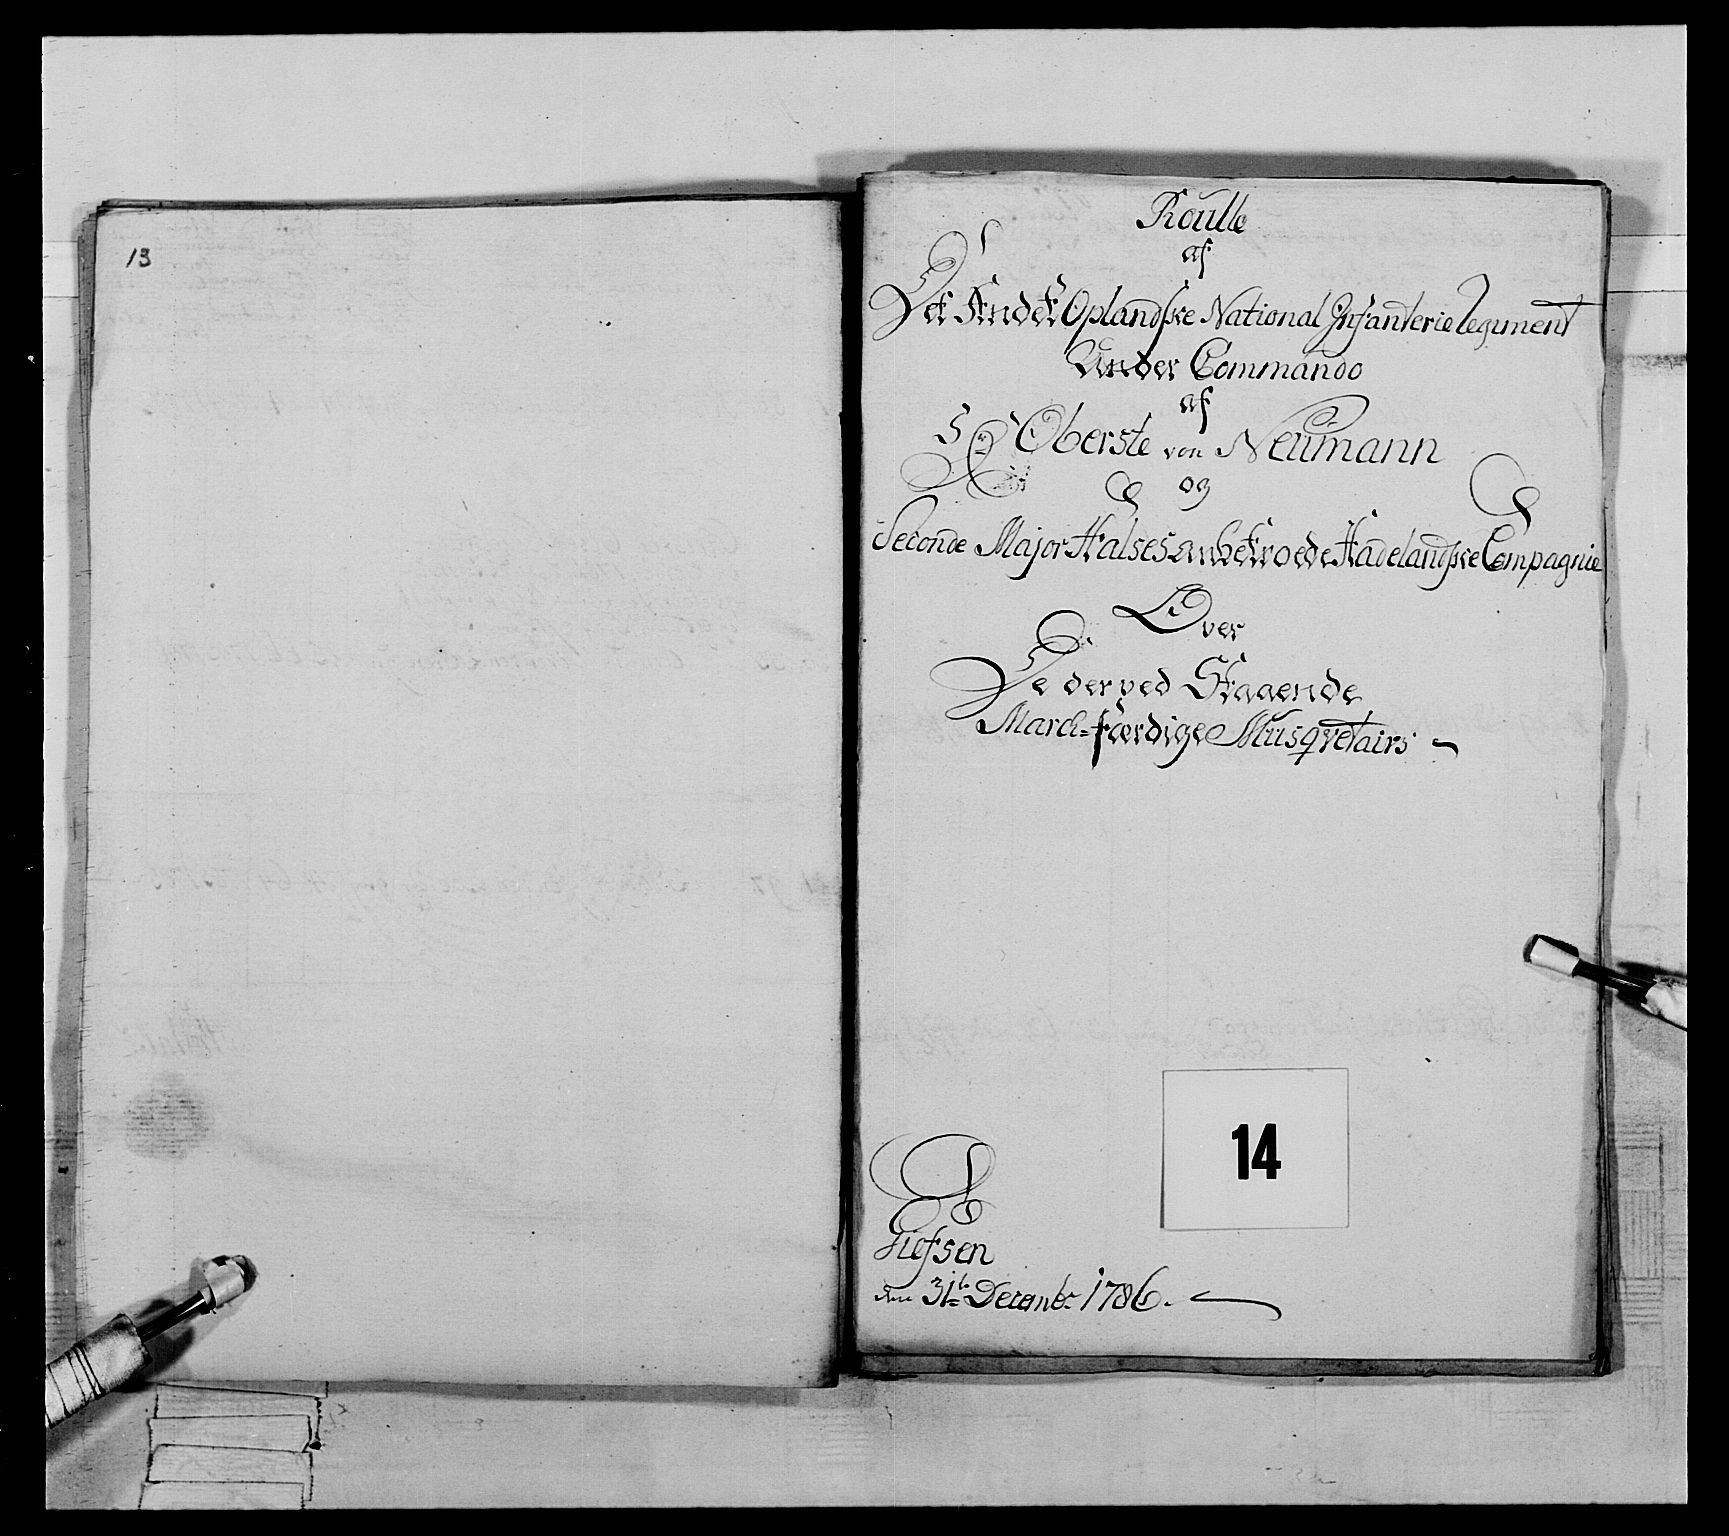 13
Roulle
af
Det Andet Oplandske National Infanterie Regiment
Under Commando
af
Hr Oberste von Neumann
og
Seconde Major Halses anbetroede Hadelandske Compagnie
Over
De derved Staaende
March-færdige Musqvetairs
14
den 31te Decembr 1786.